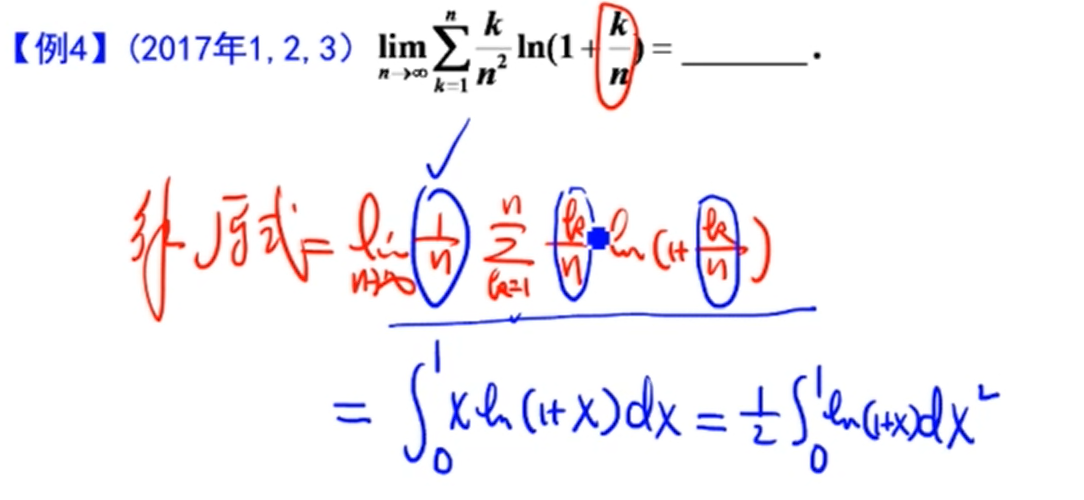 【例4】(2017年1,2,3) lim_{n→∞} ∑_{k=1}^{n} k/n² ln(1+k/n) = ______.
解 原式 = lim_{n→∞} 1/n ∑_{k=1}^{n} k/n · ln(1+k/n)
= ∫₀¹ x ln(1+x)dx = 1/2 ∫₀¹ ln(1+x)dx²